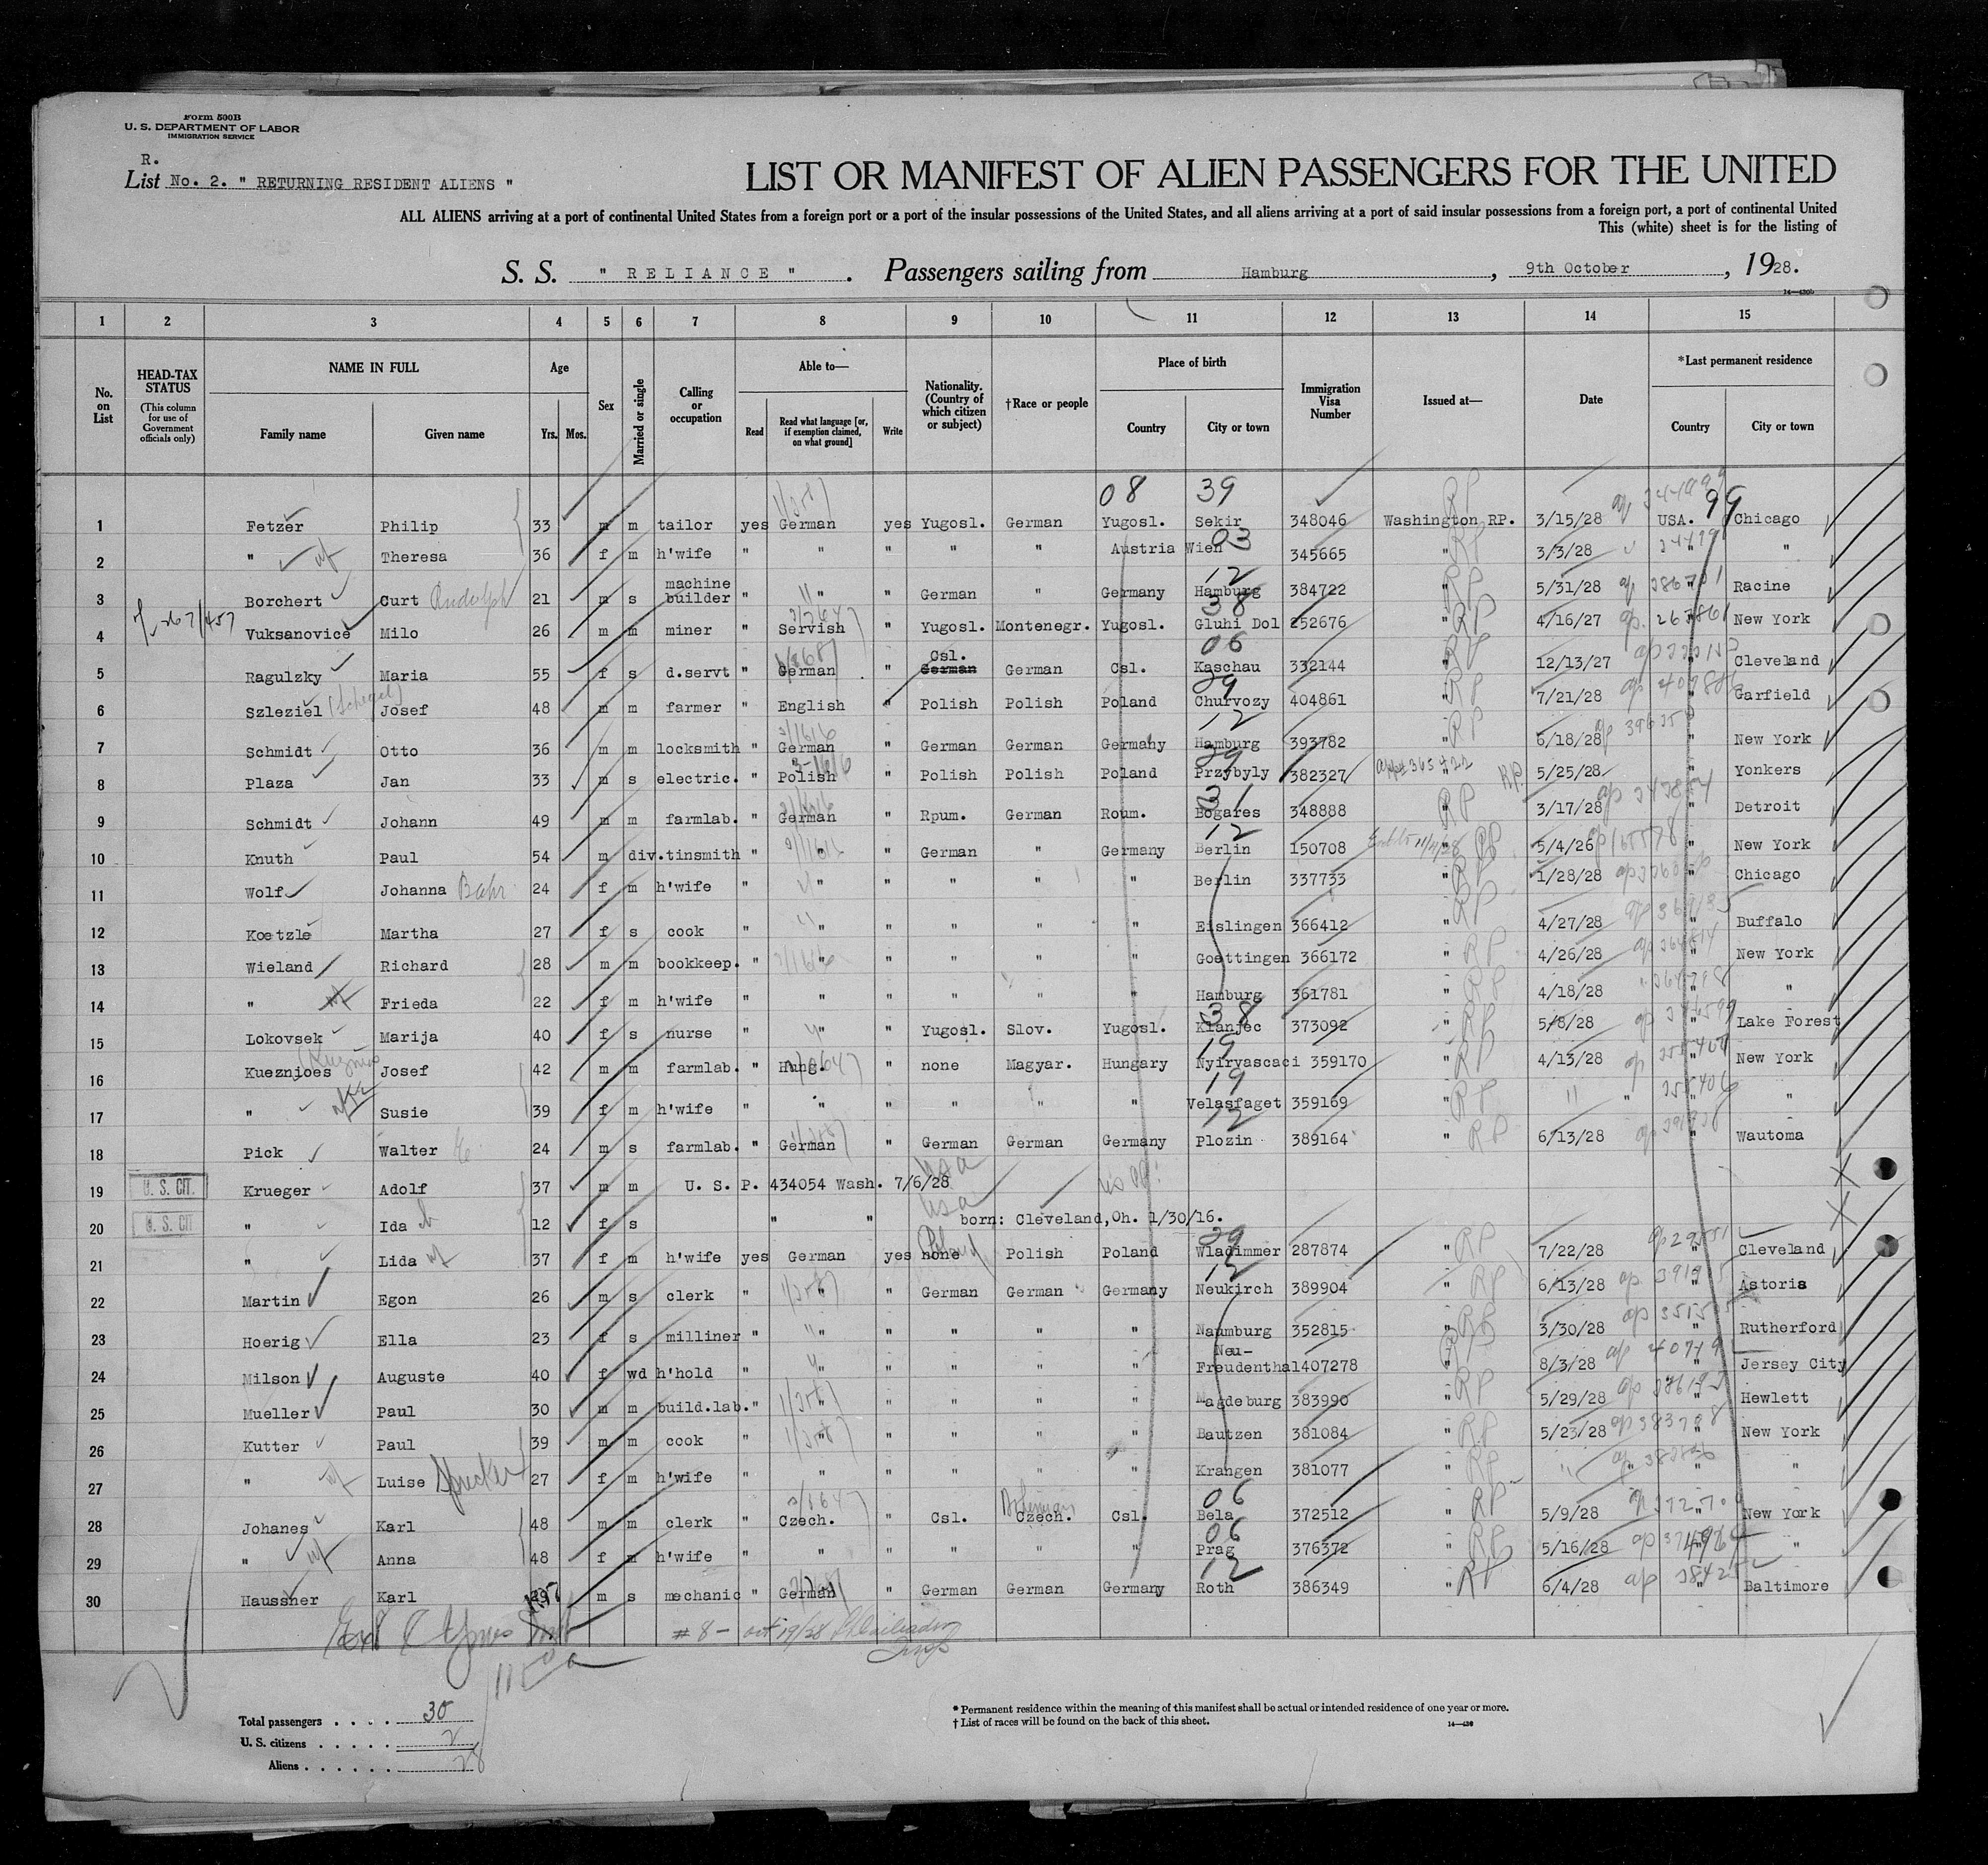 Form 500B
U. S. DEPARTMENT OF LABOR
IMMIGRATION SERVICE
R.
List No. 2. " RETURNING RESIDENT ALIENS "
LIST OR MANIFEST OF ALIEN PASSENGERS FOR THE UNITED
ALL ALIENS arriving at a port of continental United States from a foreign port or a port of the insular possessions of the United States, and all aliens arriving at a port of said insular possessions from a foreign port, a port of continental United
This (white) sheet is for the listing of
S. S. " RELIANCE " . Passengers sailing from Hamburg , 9th October , 1928.
14—430b
1 2 3 4 5 6 7 8 9 10 11 12 13 14 15
No. on List
HEAD-TAX STATUS (This column for use of Government officials only)
NAME IN FULL
Family name Given name
Age
Yrs. Mos.
Sex
Married or single
Calling or occupation
Able to—
Read Read what language [or, if exemption claimed, on what ground] Write
Nationality. (Country of which citizen or subject)
†Race or people
Place of birth
Country City or town
Immigration Visa Number
Issued at—
Date
*Last permanent residence
Country City or town
08 39 99
1 Fetzer Philip 33 m m tailor yes German yes Yugosl. German Yugosl. Sekir 348046 Washington RP. 3/15/28 USA. Chicago
03
2 " wf Theresa 36 f m h'wife " " " " " Austria Wien 345665 " RP 3/3/28 " "
12
3 Borchert Curt Rudolph 21 m s machine builder " " " German " Germany Hamburg 384722 " RP 5/31/28 " Racine
38
4 Vuksanovice Milo 26 m m miner " Servish " Yugosl. Montenegr. Yugosl. Gluhi Dol 252676 " RP 4/16/27 ap. 263861 " New York
06
5 Ragulzky Maria 55 f s d.servt " German " Csl. German German Csl. Kaschau 332144 " RP 12/13/27 " Cleveland
29
6 Szleziel Josef 48 m m farmer " English " Polish Polish Poland Churvozy 404861 " RP 7/21/28 " Garfield
12
7 Schmidt Otto 36 m m locksmith " German " German German Germany Hamburg 393782 " RP 6/18/28 " New York
29
8 Plaza Jan 33 m s electric. " Polish " Polish Polish Poland Przybyly 382327 " RP 5/25/28 " Yonkers
31
9 Schmidt Johann 49 m m farmlab. " German " Rpum. German Roum. Bogares 348888 RP 3/17/28 Detroit
12
10 Knuth Paul 54 m div. tinsmith " " " German " Germany Berlin 150708 " RP 5/4/26 " New York
11 Wolf Johanna Bahr 24 f m h'wife " " " " " " Berlin 337733 " RP 1/28/28 " Chicago
12 Koetzle Martha 27 f s cook " " " " " " Eislingen 366412 " RP 4/27/28 " Buffalo
13 Wieland Richard 28 m m bookkeep. " " " " " " Goettingen 366172 " RP 4/26/28 " New York
14 " wf Frieda 22 f m h'wife " " " " " " Hamburg 361781 " RP 4/18/28 " "
38
15 Lokovsek Marija 40 f s nurse " " " Yugosl. Slov. Yugosl. Klanjec 373092 " RP 5/8/28 " Lake Forest
19
16 Kueznjoes Josef 42 m m farmlab. " Hung. " none Magyar. Hungary Nyirvascaci 359170 " RP 4/13/28 " New York
19
17 " Susie 39 f m h'wife " " " " " " Velasfaget 359169 " RP " " "
12
18 Pick Walter 24 m s farmlab. " German " German German Germany Plozin 389164 " RP 6/13/28 " Wautoma
19 U. S. CIT. Krueger Adolf 37 m m U. S. P. 434054 Wash. 7/6/28 usa
20 U. S. CIT " Ida 12 f s " " usa born: Cleveland,Oh. 1/30/16.
29
21 " Lida wf 37 f m h'wife yes German yes none Polish Poland Wladimmer 287874 " RP 7/22/28 " Cleveland
12
22 Martin Egon 26 m s clerk " " " German German Germany Neukirch 389904 " RP 6/13/28 " Astoria
23 Hoerig Ella 23 f s milliner " " " " " " Naumburg 352815 " RP 3/30/28 " Rutherford
24 Milson Auguste 40 f wd h'hold " " " " " " Neu-Freudenthal 407278 " RP 8/3/28 " Jersey City
25 Mueller Paul 30 m m build.lab. " " " " " " Magdeburg 383990 " RP 5/29/28 " Hewlett
26 Kutter Paul 39 m m cook " " " " " " Bautzen 381084 " RP 5/23/28 ap 383788 " New York
27 " wf Luise 27 f m h'wife " " " " " " Krangen 381077 " RP " " "
06
28 Johanes Karl 48 m m clerk " Czech. " Csl. Bohemian Czech. Csl. Bela 372512 " RP 5/9/28 New York
06
29 " wf Anna 48 f m h'wife " " " " " " Prag 376372 " RP 5/16/28 " "
12
30 Haussner Karl 29 m s mechanic " German " German German Germany Roth 386349 " RP 6/4/28 " Baltimore
# 8 - oct 19/28
Total passengers . . . . 30
U. S. citizens . . . . . 2
Aliens . . . . . . 28
* Permanent residence within the meaning of this manifest shall be actual or intended residence of one year or more.
† List of races will be found on the back of this sheet.
14—430